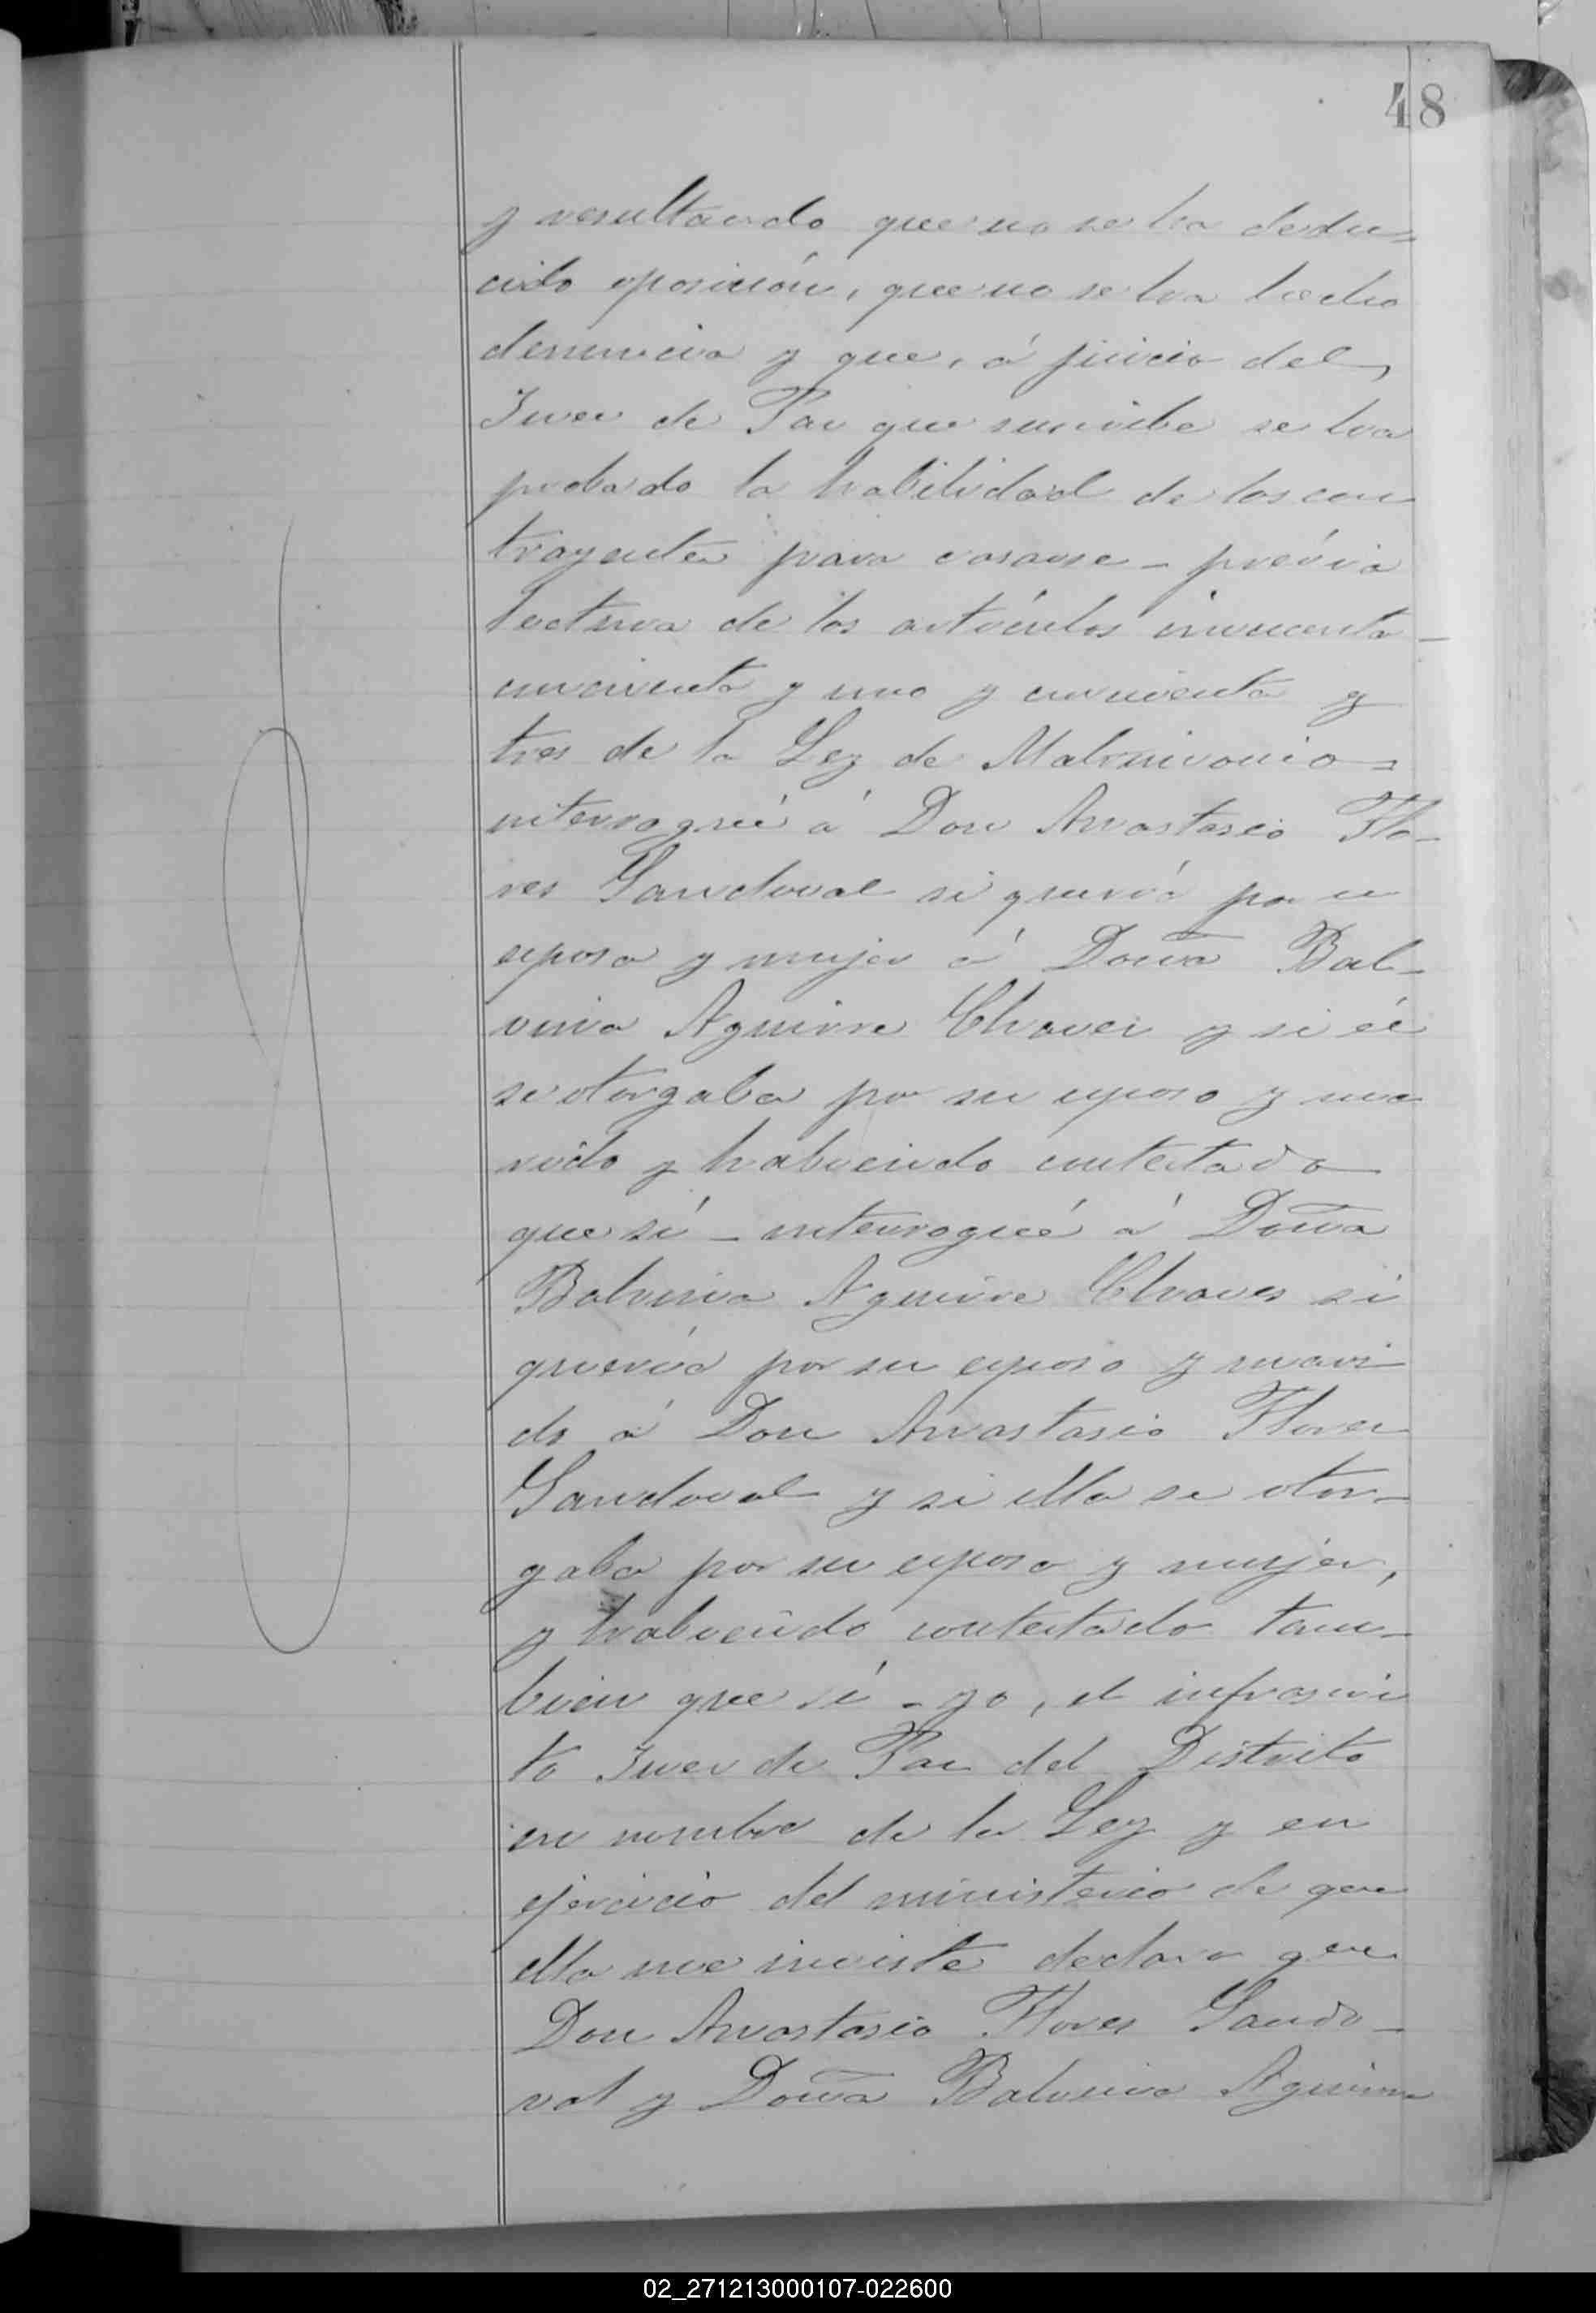 48
y resultando que no se ha dedu=
cido oposición, que no se ha hecho
denuncia y que, á juicio del,
Juez de Paz que suscribe se ha
probado la habilidad de los con
trayentes para casarse - prévia
lectura de los artículos cincuenta -
cincuenta y uno y cincuenta y
tres de la Ley de Matrimonio =
interrogué á Don Anastasio Flo-
res Sandoval si quería por su
esposa y mujer á Doña Bal-
vina Aguirre Chavez y si él
se otorgaba por su esposo y ma
rido y habiendo contestado
que sí - interrogué á Doña
Balvina Aguirre Chaves si
quería por su esposo y mari
do á Don Anastasio Flores
Sandoval y si ella se otor-
gaba por su esposa y mujer,
y habiendo contestado tam-
bien que sí - yo, el infrascri
to Juez de Paz del Distrito
en nombre de la Ley y en
ejercicio del ministerio de que
ella me inviste declaro que
Don Anastasio Flores Sando-
val y Doña Balvina Aguirre
02_271213000107-022600